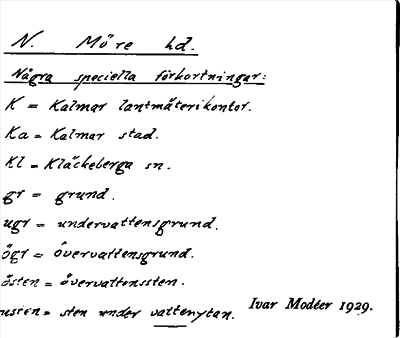 N. Möre hd.
Några speciella förkortningar:
K = Kalmar lantmäterikontor.
Ka = Kalmar stad.
Kl = Kläckeberga sn.
gr = grund.
ugr = undervattensgrund.
ögr = övervattensgrund.
östen = övervattenssten.
usten = sten under vattenytan.
Ivar Modéer 1929.